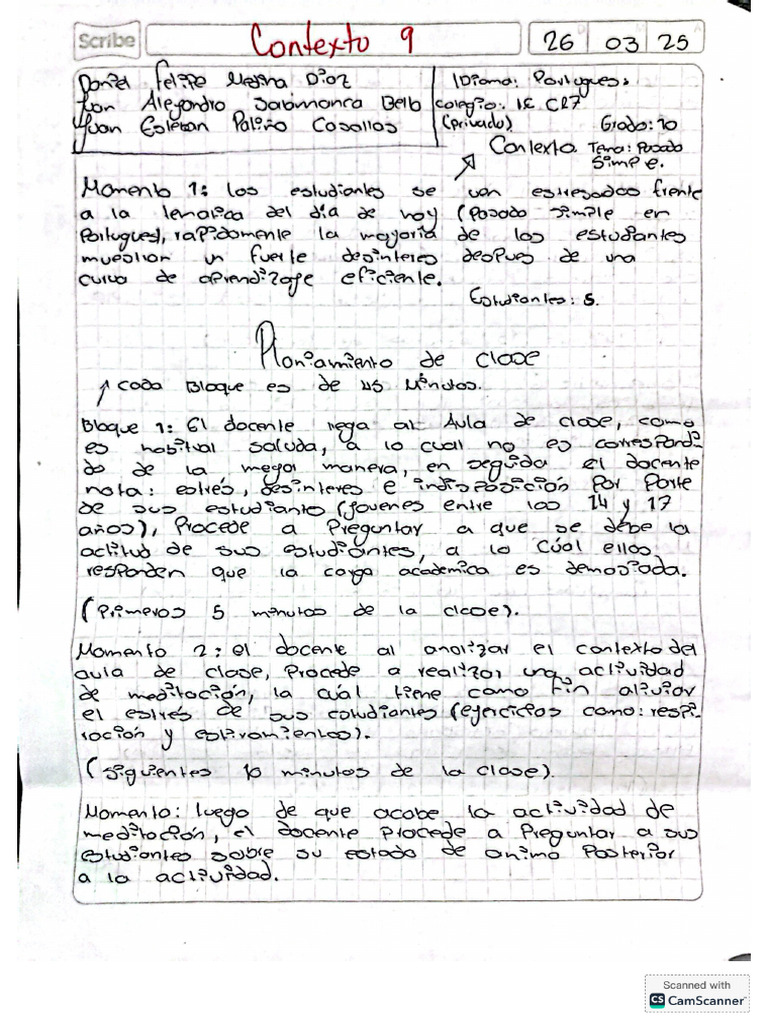 Scribe
Contexto 9
26 03 25
Daniel Felipe Medina Diaz
Juan Alejandro Salamanca Bello
Juan Esteban Patiño Casallas
Idioma: Portugues.
colegio: IE CR7
(privado) Grado: 10
Contexto. Tema: Pasado
Simple.
Momento 1: Los estudiantes se ven estresados frente
a la tematica del dia de hoy (Pasado simple en
Portugues), rapidamente la mayoria de los estudiantes
muestran un fuerte desinteres despues de una
curva de aprendizaje eficiente.
Estudiantes: 5.
Planiamiento de clase
Cada Bloque es de 45 Minutos.
Bloque 1: El docente llega al Aula de clase, como
es habitual saluda, a lo cual no es correspondi-
do de la mejor manera, en seguida el docente
nota: estrés, desinteres e indisposición por parte
de sus estudiantes (jovenes entre los 14 y 17
años), Procede a Preguntar a que se debe la
actitud de sus estudiantes, a lo cúal ellos
responden que la carga academica es demasiada.
(Primeros 5 minutos de la clase).
Momento 2: el docente al analizar el contexto del
aula de clase, Procede a realizar una actividad
de meditación, la cual tiene como fin aliviar
el estrés de sus estudiantes (ejercicios como: respi-
ración y estiramientos).
(Siguientes 10 minutos de la clase).
Momento: luego de que acabe la actividad de
meditación, el docente Procede a Preguntar a sus
estudiantes sobre su estado de animo Posterior
a la actividad.
Scanned with
CS CamScanner